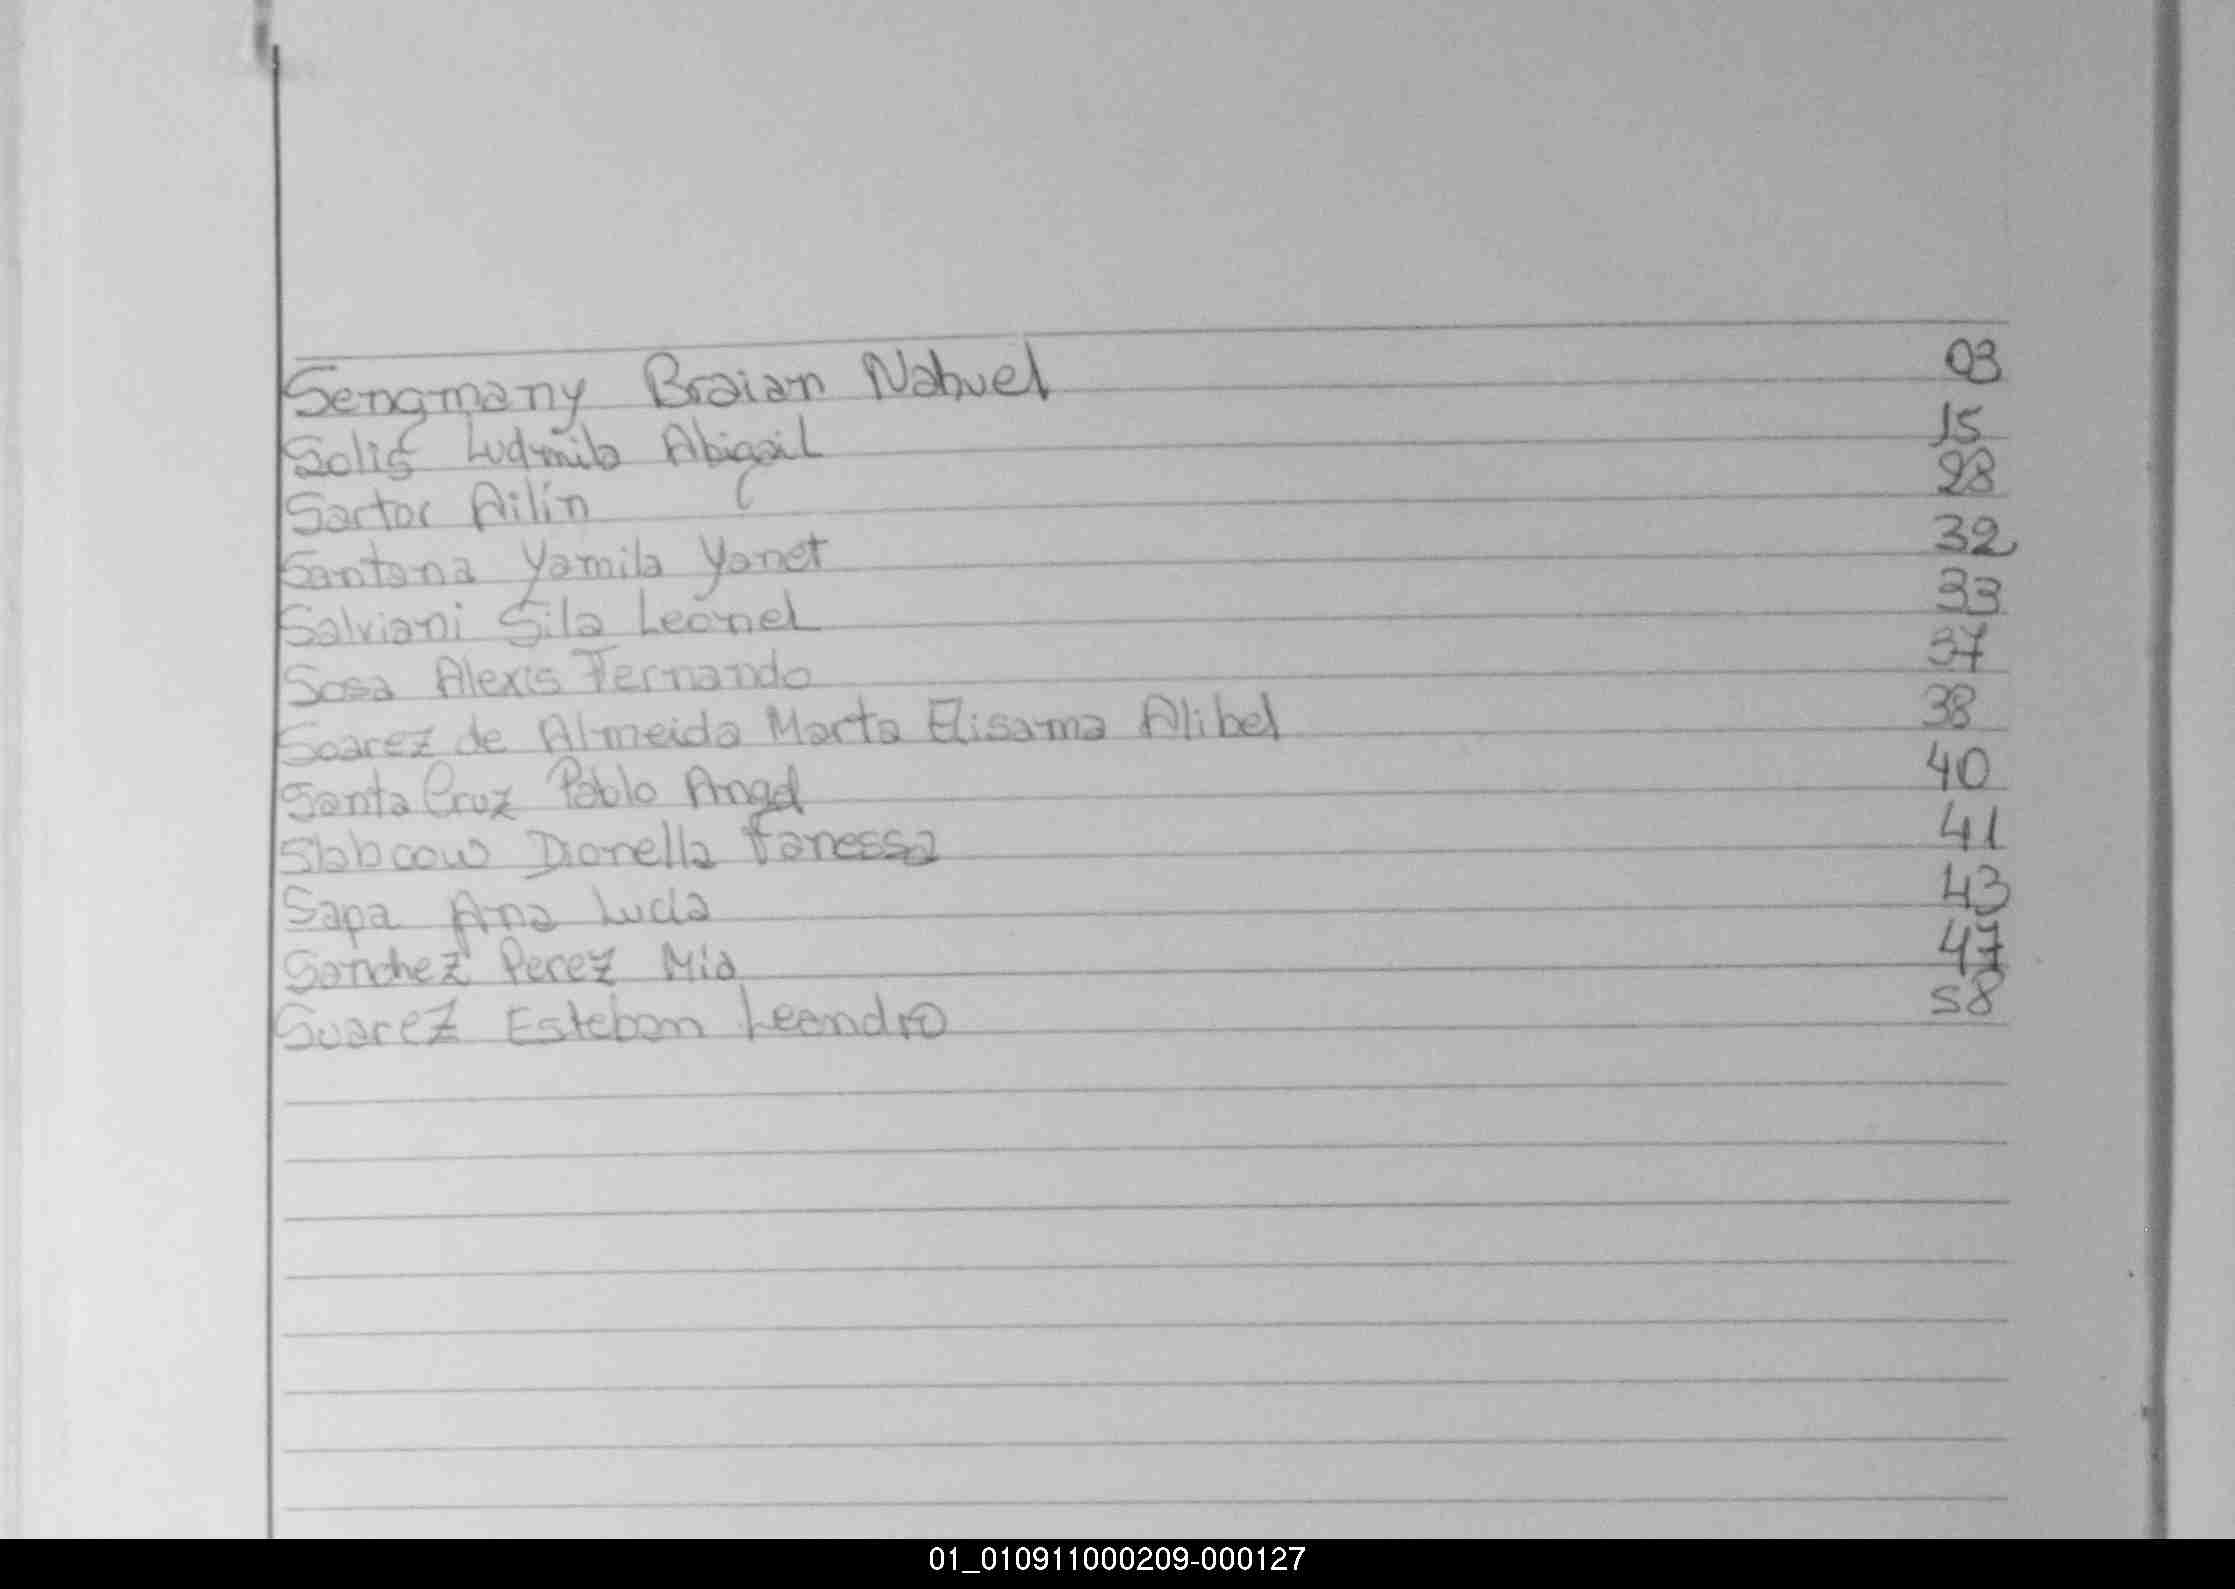 Sengmany Braian Nahuel 03
Solis Ludmila Abigail 15
Sartor Ailín 28
Santana Yamila Yanet 32
Salviani Sila Leonel 33
Sosa Alexis Fernando 37
Soarez de Almeida Marta Elisama Alibel 38
Santa Cruz Pablo Angel 40
Slabcow Dionella Vanessa 41
Sapa Ana Lucia 43
Sanchez Perez Mia 47
Suarez Esteban Leandro 58
01_010911000209-000127